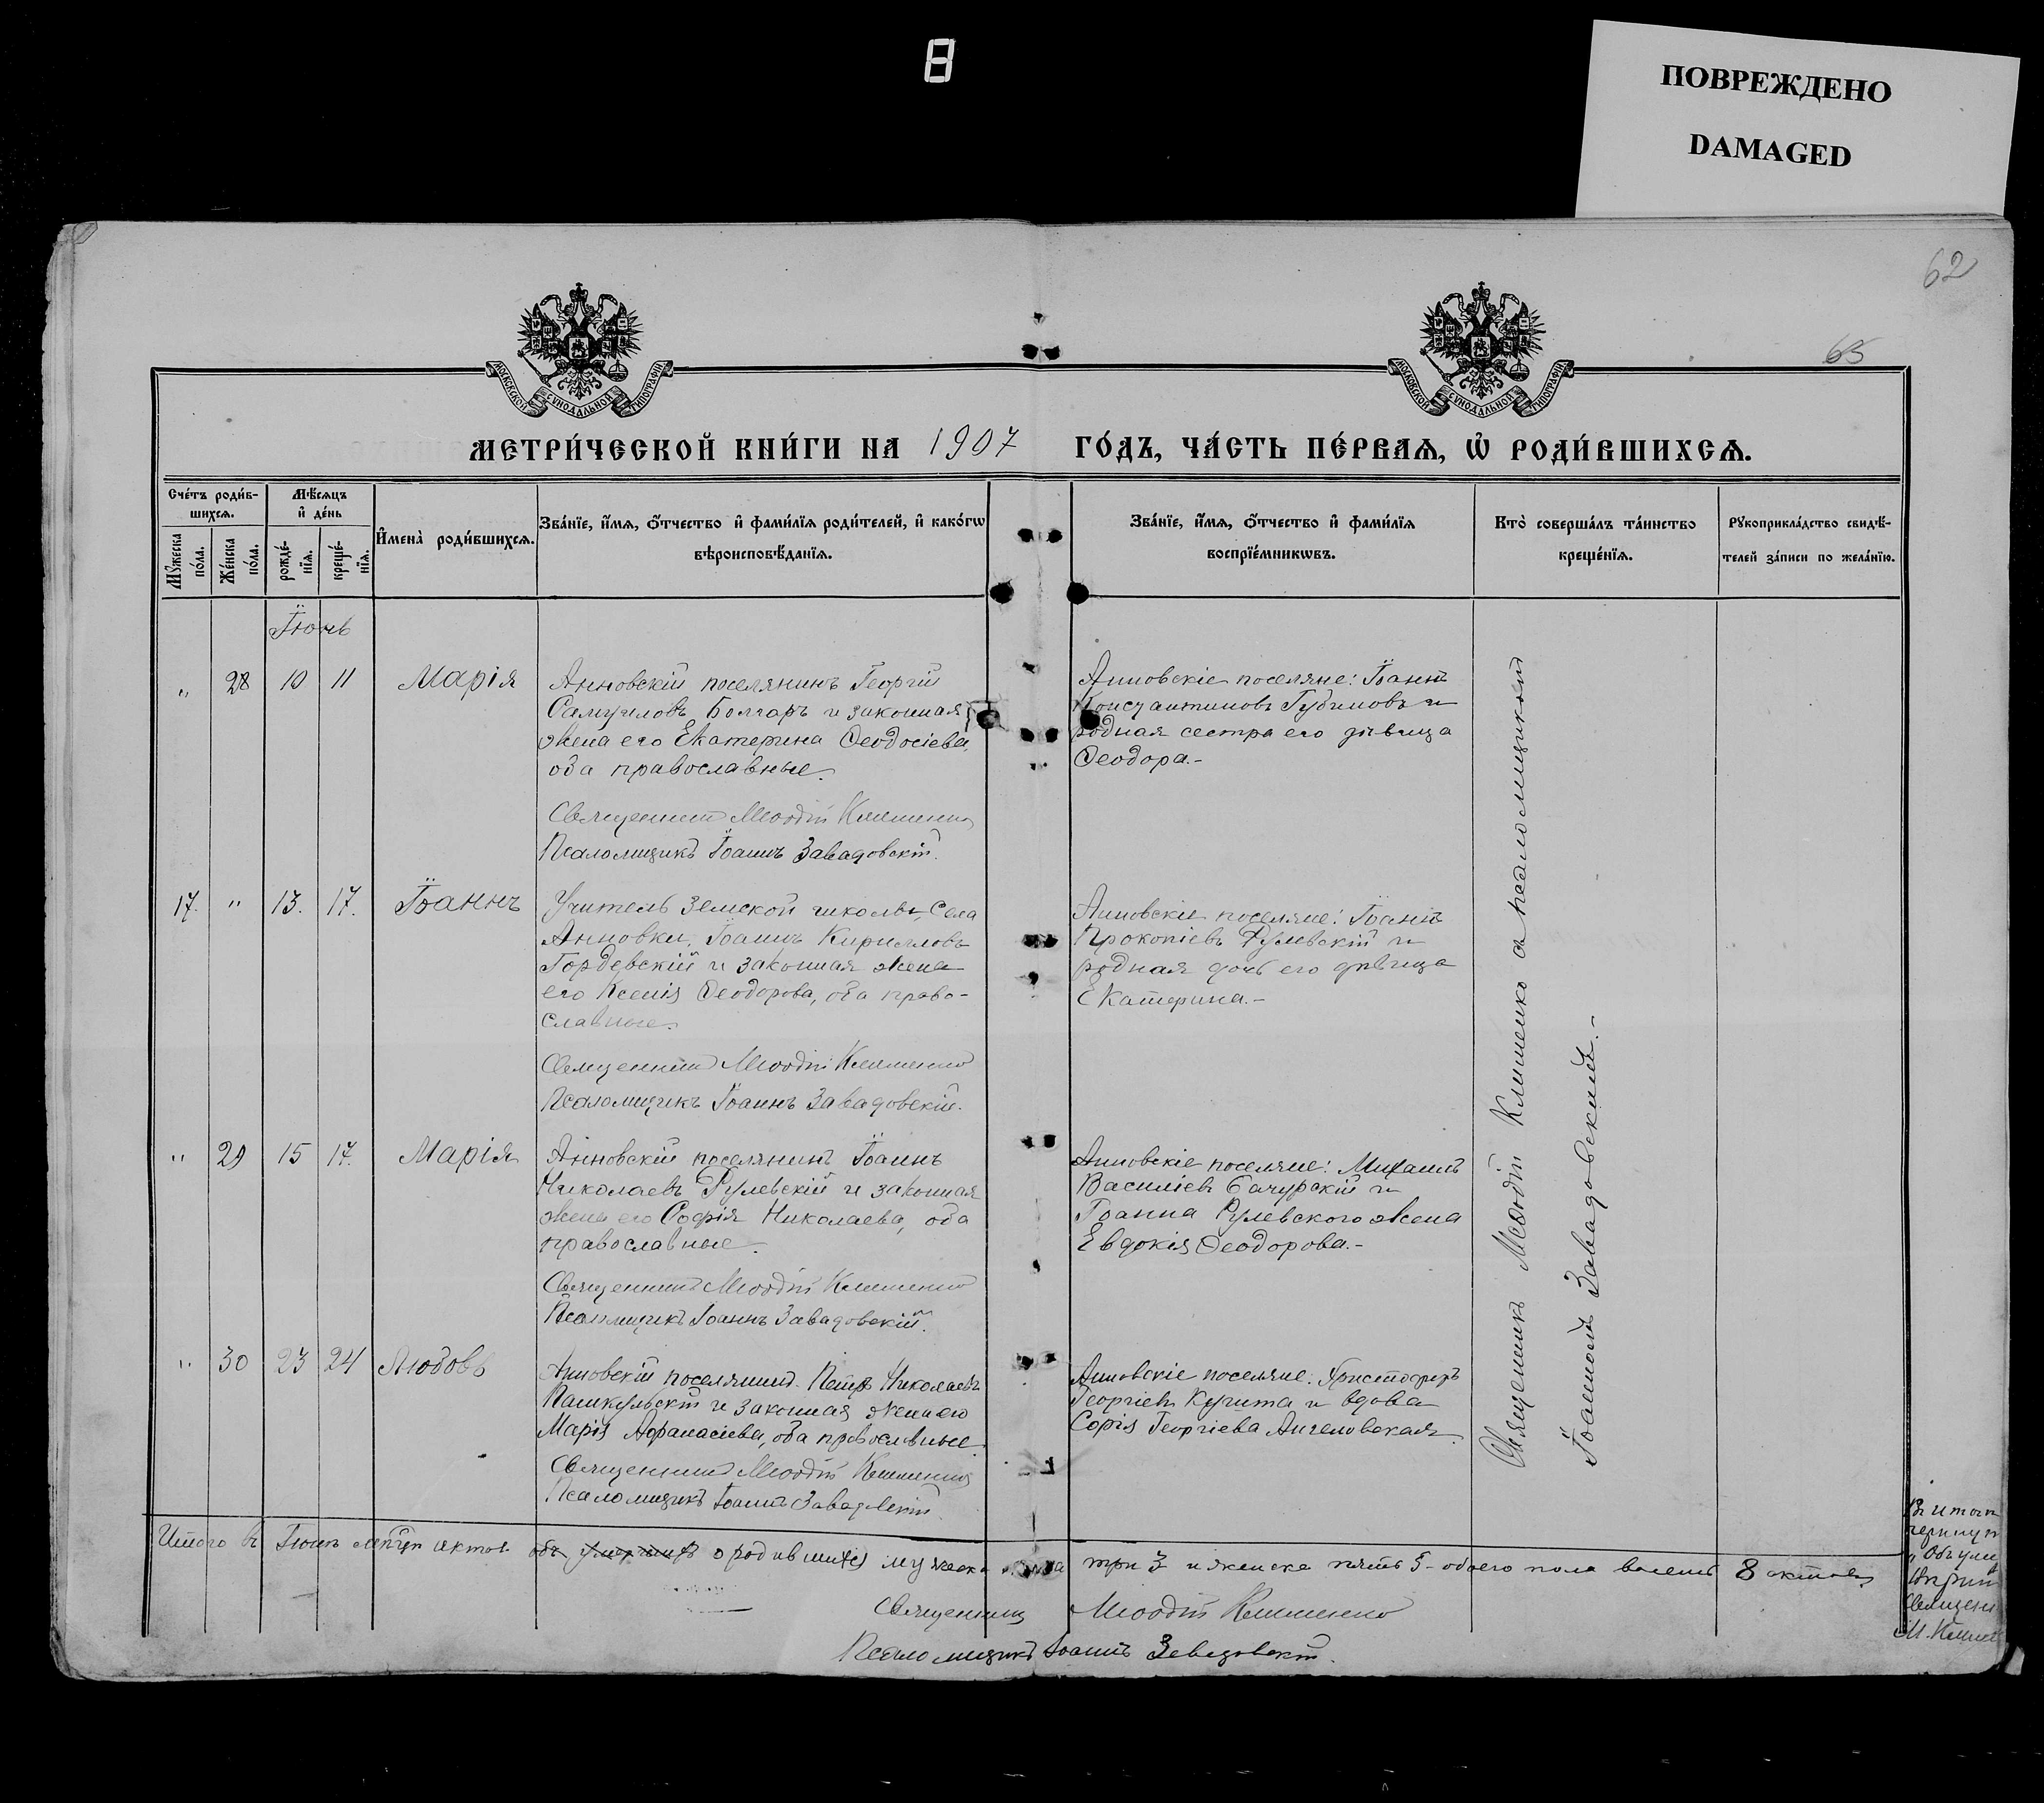 8
ПОВРЕЖДЕНО
DAMAGED
62
65
МОСКОВСКОЙ СѴНОДАЛЬНОЙ ТИПОГРАФІИ
МОСКОВСКОЙ СѴНОДАЛЬНОЙ ТИПОГРАФІИ
МЕТРИ́ЧЕСКОЙ КНИ́ГИ НА 1907 ГО́ДЪ, ЧА́СТЬ ПЕ́РВАѦ, Ѡ҆ РОДИ́ВШИХСѦ.
Сче́тъ роди́в-
шихсѧ.
Мꙋ́жеска по́ла.
Же́нска по́ла.
Мѣ́сѧцъ
и҆ де́нь
рожде́-
нїѧ.
креще́-
нїѧ.
И҆мена̀ роди́вшихсѧ.
Зва́нїе, и҆́мѧ, ѻ҆́тчество и҆ фами́лїѧ роди́телей, и҆ како́гѡ
вѣроисповѣ́данїѧ.
Зва́нїе, и҆́мѧ, ѻ҆́тчество и҆ фами́лїѧ
воспрїе́мникѡвъ.
Кто̀ соверша́лъ та́инство
креще́нїѧ.
Рꙋкоприкла́дство свидѣ́-
телей за́писи по жела́нїю.
Іюнь
" 28 10 11 Марія
Анновскій поселянинъ Георгій
Самуиловъ Болгаръ и законная
жена его Екатерина Ѳеодосіева,
оба православные.
Священникъ Меѳодій Клименко
Псаломщикъ Іоаннъ Завадовскій.
Анновскіе поселяне: Іоаннъ
Константиновъ Губиновъ и
родная сестра его дѣвица
Ѳеодора.-
17. " 13. 17. Іоаннъ
Учитель земской школы, села
Анновки, Іоаннъ Кирилловъ
Гордевскій и законная жена
его Ксенія Ѳеодорова, оба право-
славные.
Священникъ Меѳодій Клименко
Псаломщикъ Іоаннъ Завадовскій.
Анновскіе поселяне: Іоаннъ
Прокопіевъ Рулевскій и
родная дочь его дѣвица
Екатерина.-
" 29 15 17. Марія
Анновскій поселянинъ Іоаннъ
Николаевъ Рулевскій и законная
жена его Софія Николаева, оба
православные.
Священникъ Меѳодій Клименко
Псаломщикъ Іоаннъ Завадовскій.
Анновскіе поселяне: Михаилъ
Василіевъ Бачурскій и
Іоанна Рулевского жена
Евдокія Ѳеодорова.-
" 30 23 24 Любовь
Анновскій поселянинъ Петръ Николаевъ
Пашкульскій и законная жена его
Марія Афанасіева, оба православные
Священникъ Меѳодій Клименко
Псаломщикъ Іоаннъ Завадовскій
Анновскіе поселяне: Христофоръ
Георгіевъ Кушта и вдова
Софія Георгіева Ангеловская.
Священникъ Меѳодій Клименко и псаломщикъ
Іоанной Завадовский.-
Итого въ Іюнѣ мѣсяцѣ актовъ объ умершихъ о родившихся мужеска пола три 3 и женска пять 5 обоего пола восемь 8 актовъ
Священникъ Меѳодій Клименко
Псаломщикъ Іоаннъ Завадовскій.
Въ итогѣ
"Объ уме
Священ
М. Клим